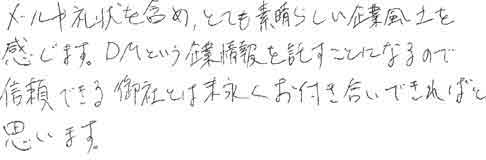 メールや礼状を含め、とても素晴らしい企業風土を
感じます。DMという企業情報を託すことになるので
信頼できる御社とは末永くお付き合いできればと
思います。